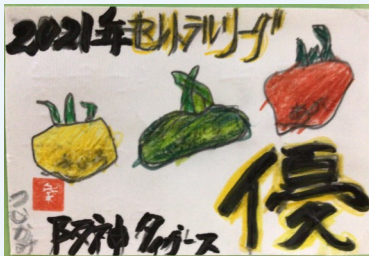 2021年セントラルリーグ
優
阪神タイガース